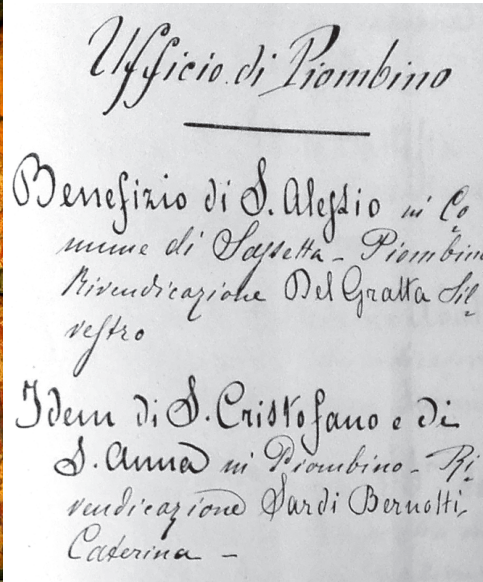 Ufficio di Piombino
Benefizio di S. Alessio in Co
mune di Sassetta - Piombino
Rivendicazione Del Gratta Sil
vestro
Idem di S. Cristofano e di
S. Anna in Piombino - Ri
vendicazione Sardi Bernotti,
Caterina -